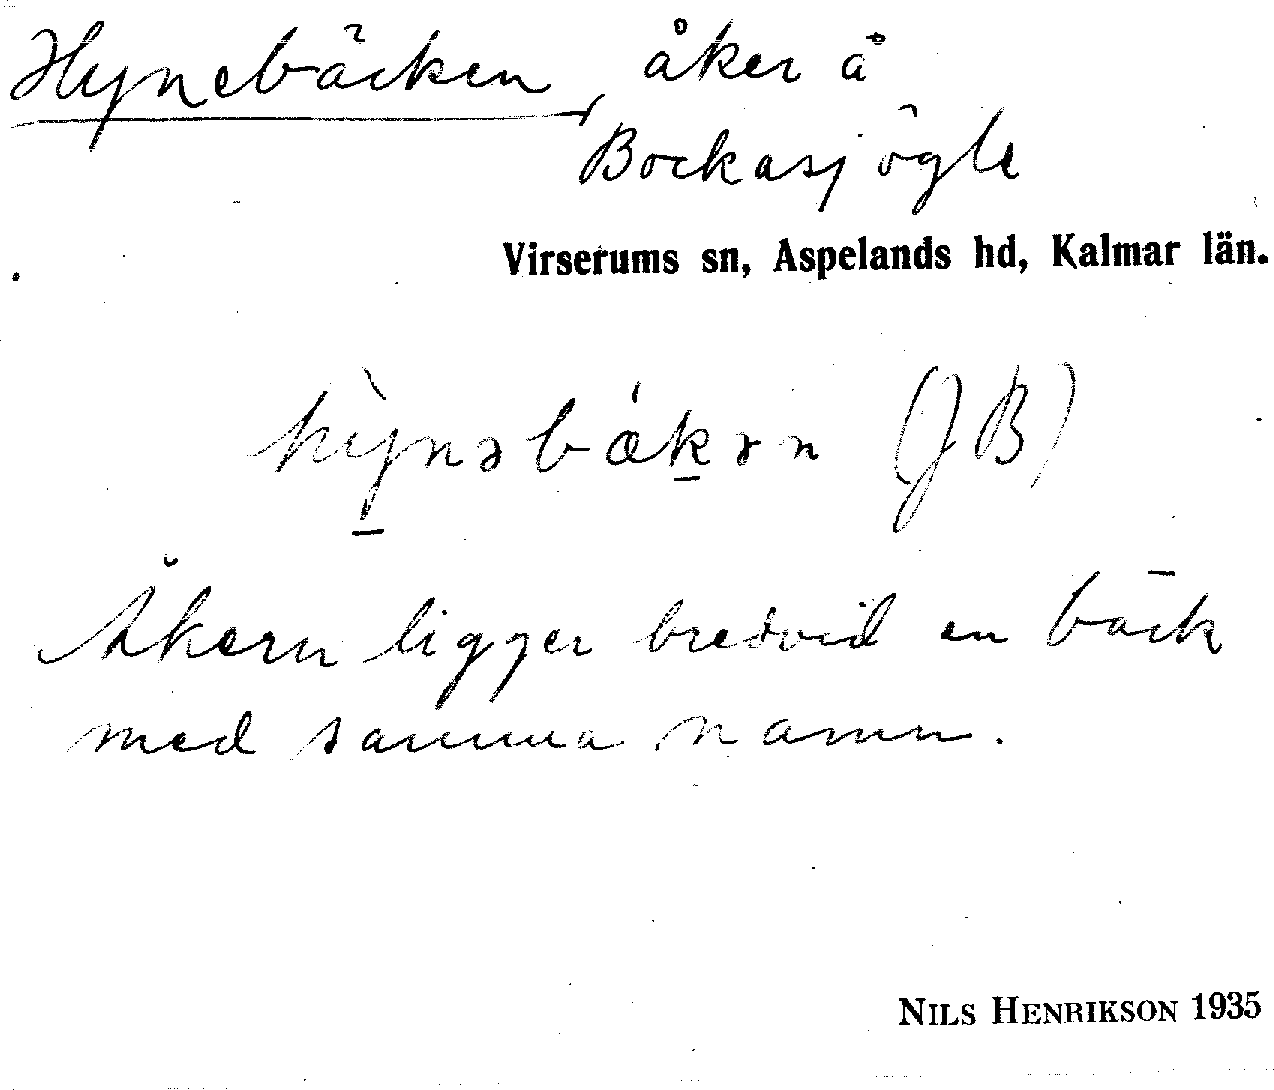 Hynebäcken, åker å
Bockasjögle
Virserums sn, Aspelands hd, Kalmar län.
hỳnəbǽkən (JB)
Åkern ligger bredvid en bäck
med samma namn.
NILS HENRIKSON 1935